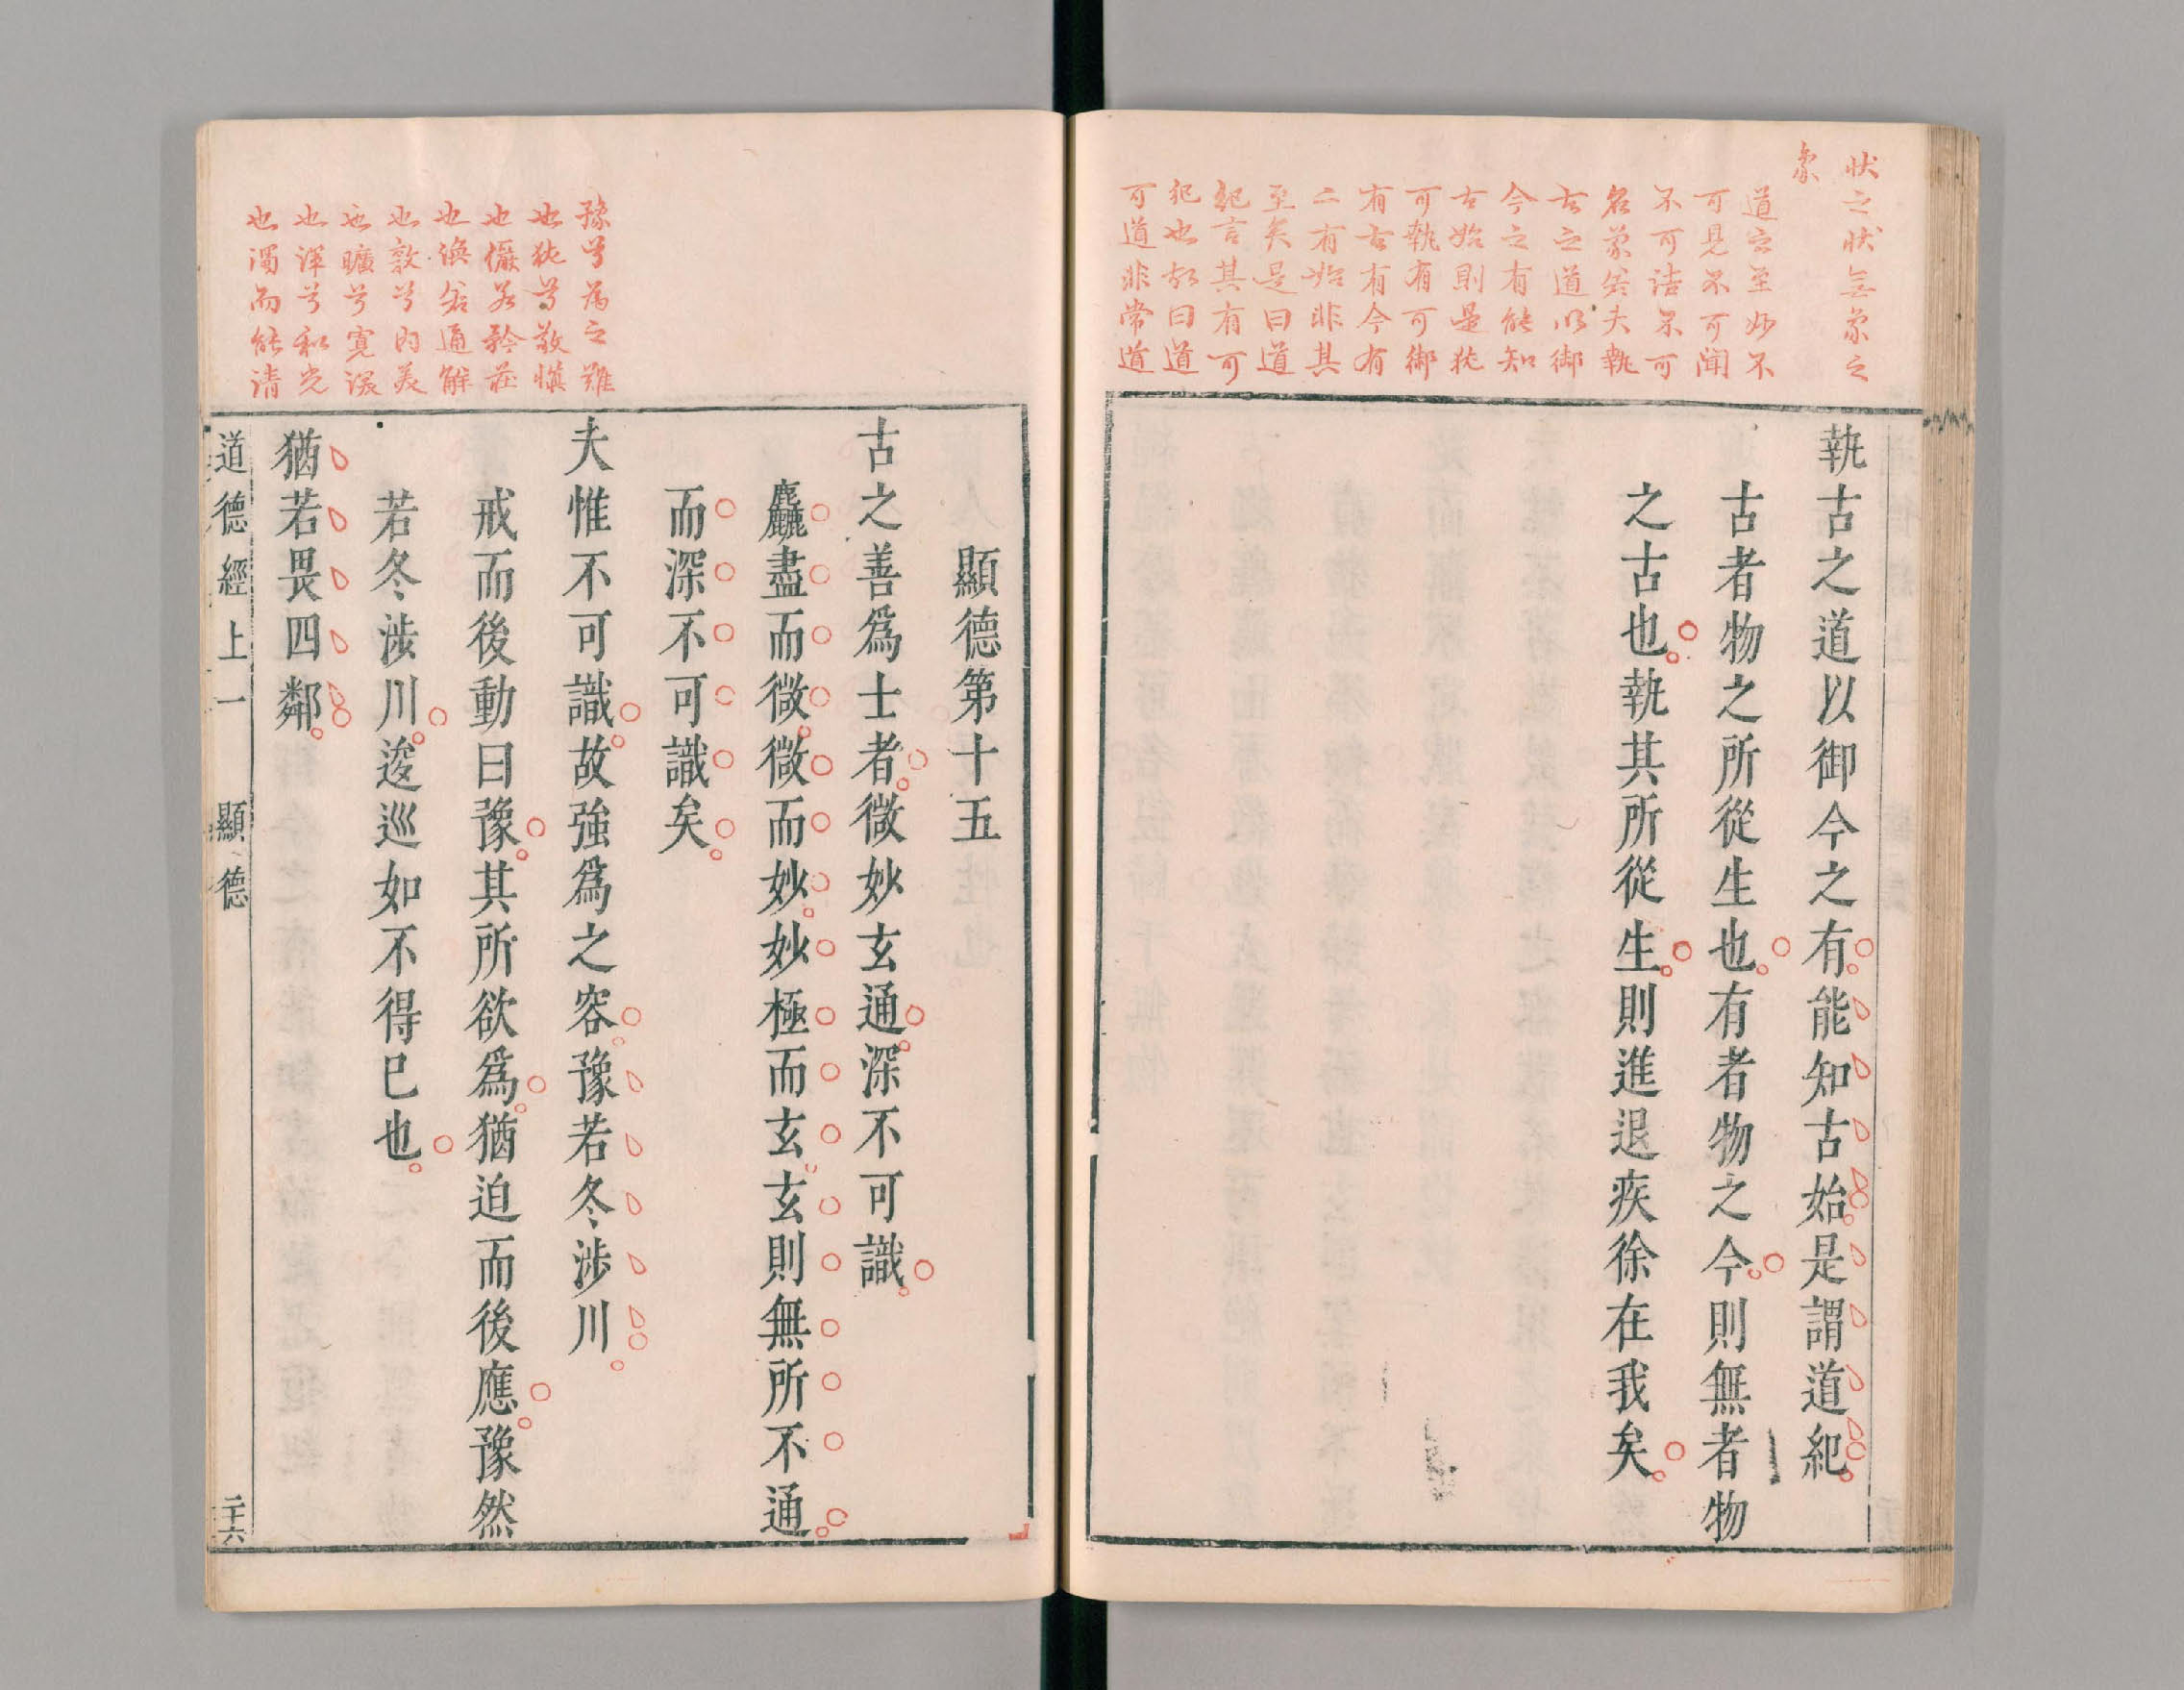 狀之狀無象之
象
道之至妙不
可見不可聞
不可詰不可
名象矣夫執
古之道以御
今之有能知
古始則是犹
可執有可御
有古有今有
二有始非其
至矣是曰道
紀言其有可
紀也故曰道
可道非常道
執古之道以御今之有能知古始是謂道紀
古者物之所從生也有者物之今則無者物
之古也執其所從生則進退疾徐在我矣
豫兮為之難
也犹兮敬慎
也儼若矜莊
也渙若通解
也敦兮內美
也曠兮寬深
也渾兮和光
也濁而能清
顯德第十五
古之善爲士者微妙玄通深不可識
麤盡而微微而妙妙極而玄玄則無所不通
而深不可識矣
夫惟不可識故強爲之容豫若冬涉川
戒而後動曰豫其所欲爲猶迫而後應豫然
若冬涉川逡巡如不得已也
猶若畏四鄰
道德經上一 顯德 二十六